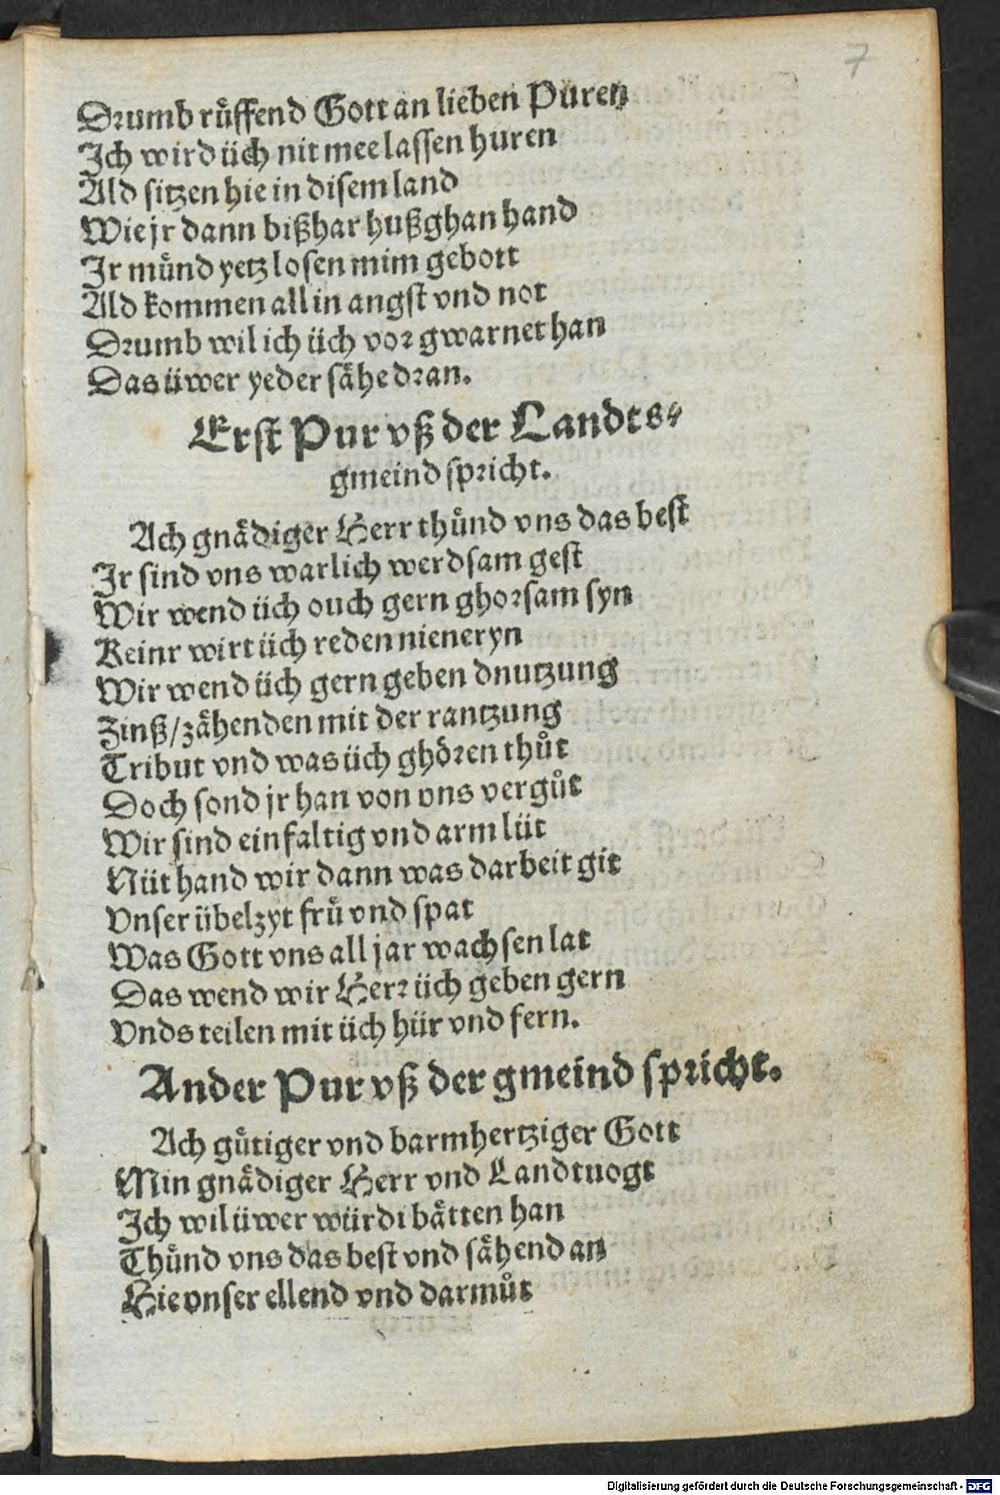 7
Drumb ruͤffend Gott an lieben Puren
Ich wird üch nit mee lassen huren
Ald sitzen hie in disem land
Wie jr dann bißhar hußghan hand
Ir muͤnd yetz losen mim gebott
Ald kommen all in angst vnd not
Drumb wil ich üch vor gwarnet han
Das üwer yeder saͤhe dran.
Erst Pur vß der Landts⸗
gmeind spricht.
Ach gnaͤdiger Herr thuͤnd vns das best
Ir sind vns warlich werdsam gest
Wir wend üch ouch gern ghorsam syn
Keinr wirt üch reden nieneryn
Wir wend üch gern geben dnutzung
Zinß/zaͤhenden mit der rantzung
Tribut vnd was üch ghoͤren thuͦt
Doch sond jr han von vns verguͦt
Wir sind einfaltig vnd arm lüt
Nüt hand wir dann was darbeit git
Vnser übelzyt fruͤ vnd spat
Was Gott vns all jar wachsen lat
Das wend wir Herr üch geben gern
Vnds teilen mit üch hür vnd fern.
Ander Pur vß der gmeind spricht.
Ach guͤtiger vnd barmhertziger Gott
Min gnaͤdiger Herr vnd Landtuogt
Ich wil üwer würdi baͤtten han
Thuͤnd vns das best vnd saͤhend an
Hie vnser ellend vnd darmuͦt
Digitalisierung gefördert durch die Deutsche Forschungsgemeinschaft - DFG